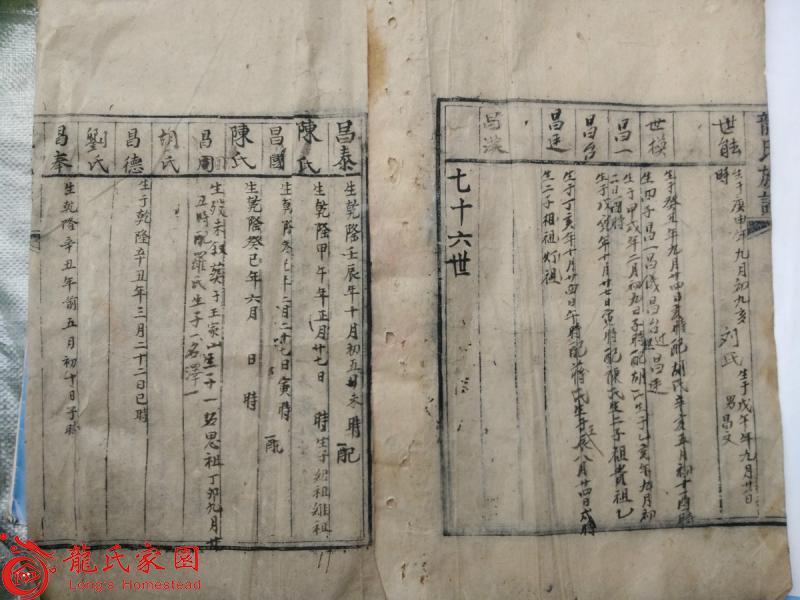 龍氏族譜
世能 生于庚申年九月初九亥時
刘氏 生于戊午年九月廿日 男昌文
世模 生于癸丑年九月廿四日亥時配胡氏辛亥五月初十酉時
生四子昌一昌儀昌台昌連
昌一 生于甲戌年二月初九日子時配胡二生于乙亥年九月初二日酉時
昌台 年十月廿七日寅時配陳氏生二子祖貴祖
昌連 生于丁亥年十月廿四日午時配蔣氏生 八月廿四日戌時
生二子祖 祖灯祖
昌漢
七十六世
昌泰 生乾隆壬辰年十月初五日未時 配
陳氏 生乾隆甲午年正月廿七日 時生子 祖 祖
昌國 生乾隆癸巳年二月二十七日寅時 配
陳氏 生乾隆癸巳年六月 日 時
昌周 生 葬于王家山 思祖丁卯九月廿
五時配羅氏生子 名澤一
胡氏
昌德 生于乾隆辛丑年三月二十二日巳時
劉氏
昌奉 生乾隆辛丑年前五月初十日子時
龍氏家園
Long's Homestead